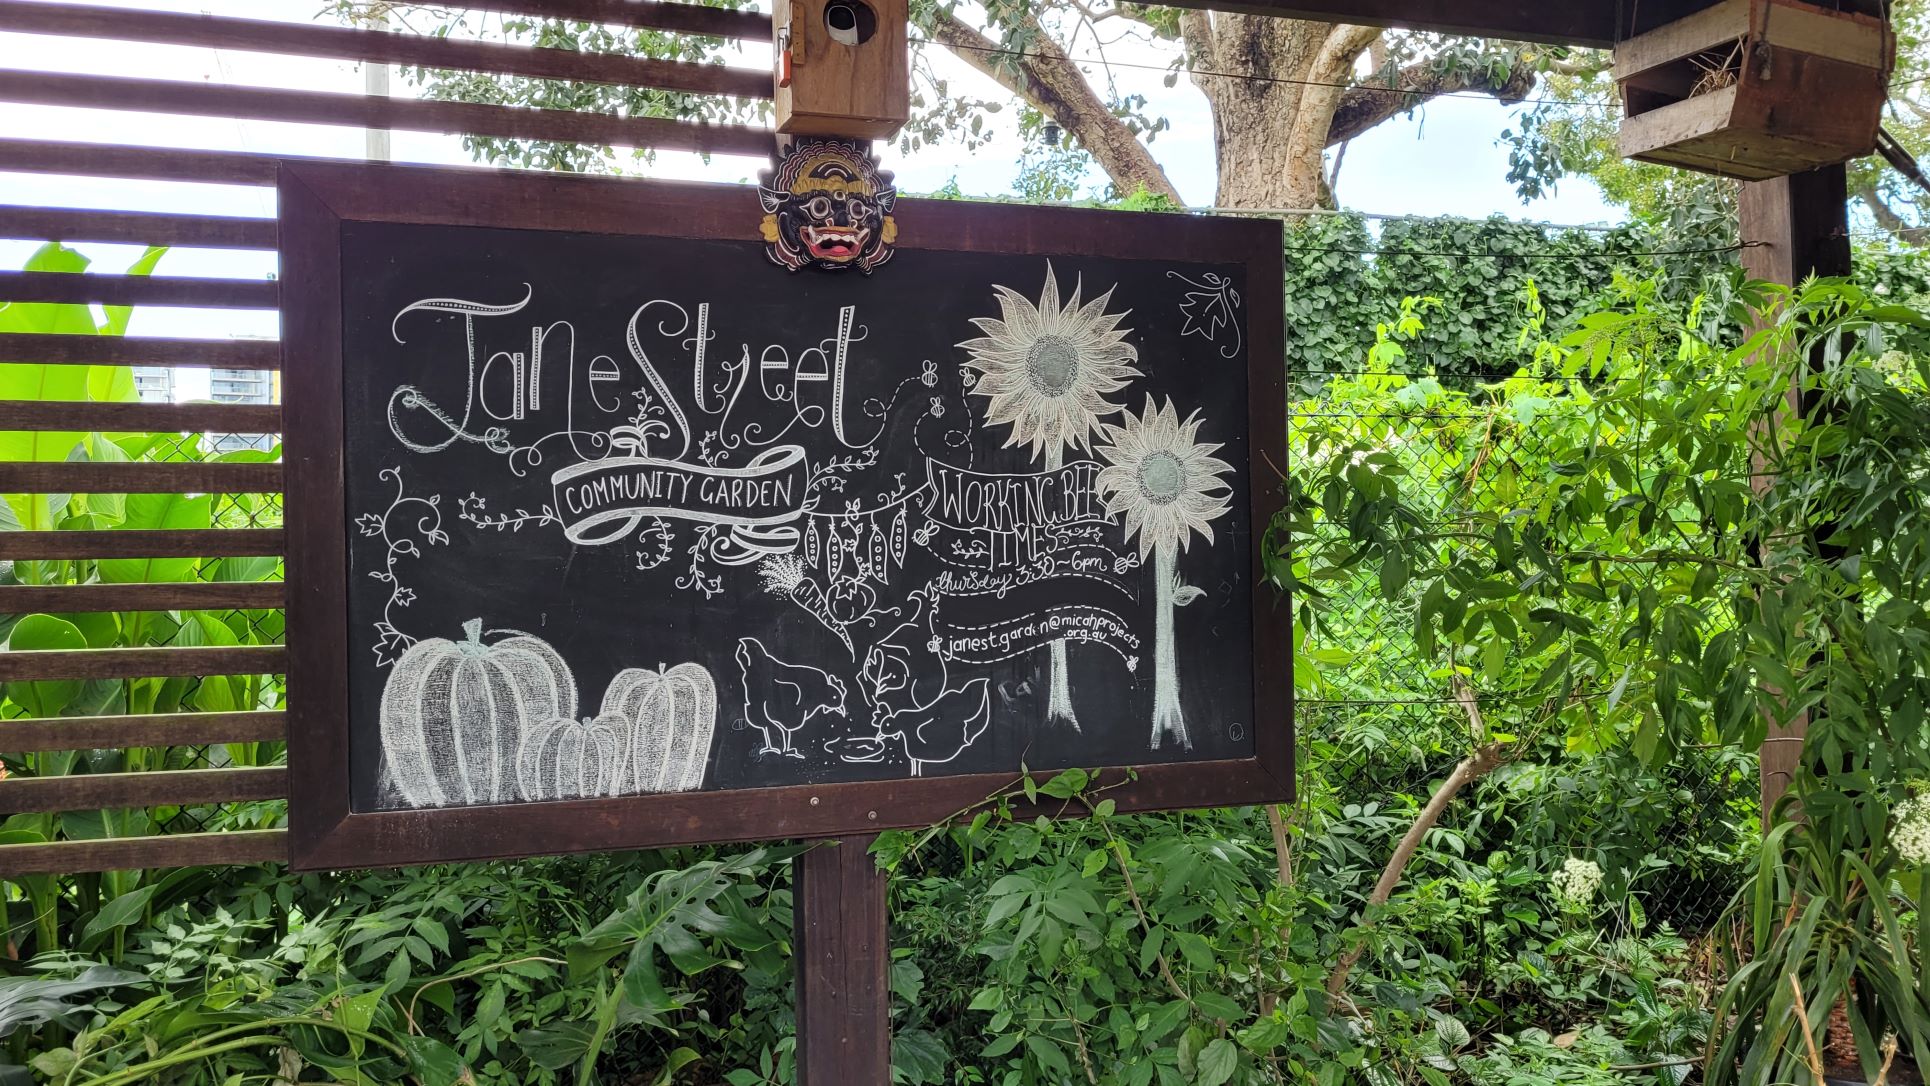 Jane Street
COMMUNITY GARDEN
WORKING BEE
TIMES
thursday 3:30~6pm
janest.garden@micahprojects
.org.au